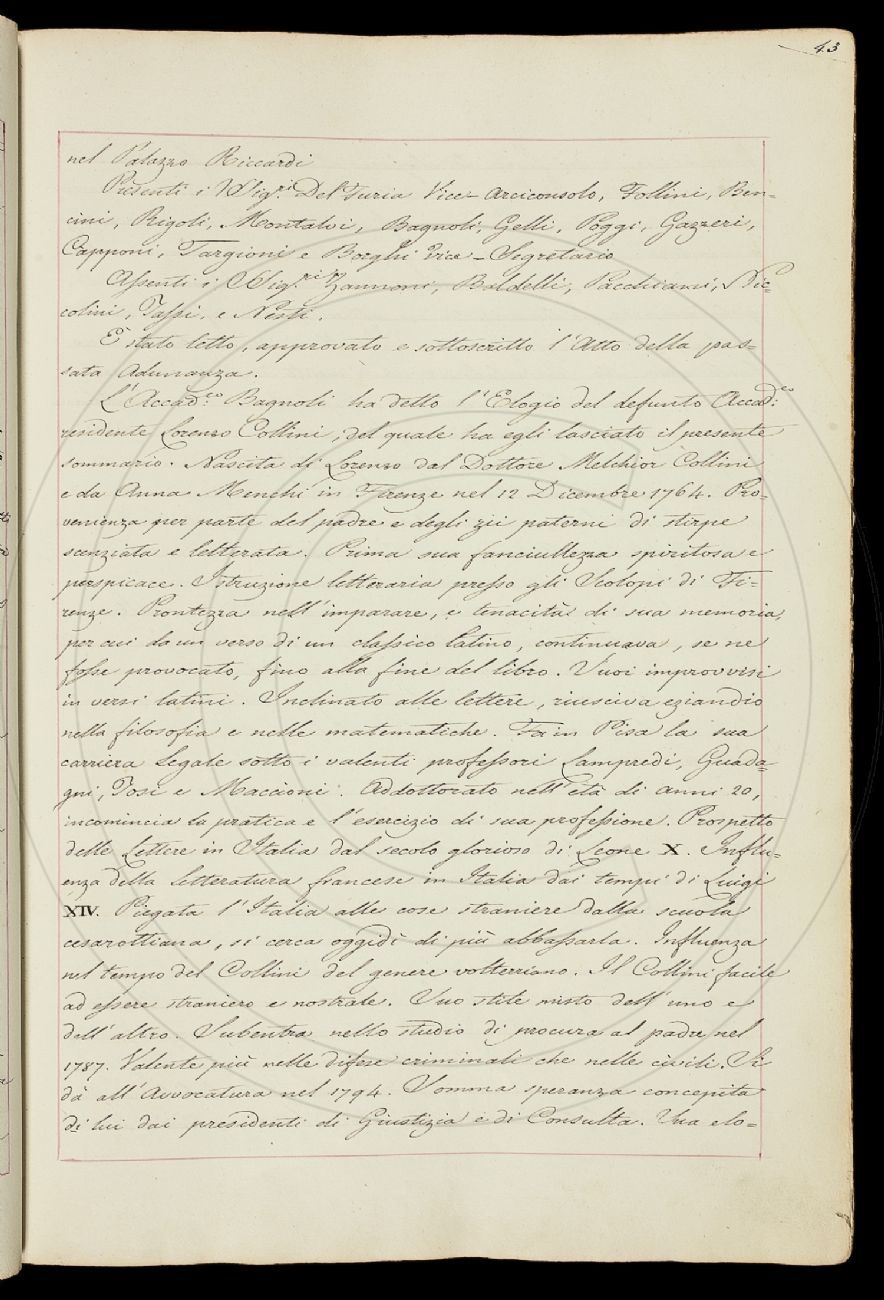 43
nel Palazzo Riccardi
Presenti i SSig.ri Del Furia Vice-Arciconsolo, Follini, Ben-
cini, Rigoli, Montalvi, Bagnoli, Gelli, Poggi, Gazzeri,
Capponi, Targioni e Borghi Vice-Segretario
Assenti i SSig.ri Zannoni, Baldelli, Pacchiani, Nic-
colini, Tassi, e Nesti.
È stato letto, approvato e sottoscritto l'Atto della pas-
sata Adunanza.
L'Accad:co Bagnoli ha detto l'Elogio del defunto Accad:co
residente Lorenzo Collini, del quale ha egli lasciato il presente
sommario. Nascita di Lorenzo dal Dottore Melchior Collini
e da Anna Menchi in Firenze nel 12 Dicembre 1764. Pro-
venienza per parte del padre e degli zii paterni di stirpe
scenziata e letterata. Prima sua fanciullezza spiritosa e
perspicace. Istruzione letteraria presso gli Scolopi di Fi-
renze. Prontezza nell'imparare, e tenacità di sua memoria,
per cui da un verso di un classico latino, continuava, se ne
fosse provocato, fino alla fine del libro. Suoi improvvisi
in versi latini. Inclinato alle lettere, riusciva eziandio
nella filosofia e nelle matematiche. Fa in Pisa la sua
carriera legale sotto i valenti professori Lampredi, Guada-
gni, Tosi e Maccioni. Addottorato nell'età di anni 20,
incomincia la pratica e l'esercizio di sua professione. Prospetto
delle Lettere in Italia dal secolo glorioso di Leone X. Influ-
enza della letteratura francese in Italia dai tempi di Luigi
XIV. Piegata l'Italia alle cose straniere dalla scuola
cesarottiana, si cerca oggidì di più abbassarla. Influenza
nel tempo del Collini del genere volteriano. Il Collini facile
ad essere straniero e nostrale. Suo stile misto dell'uno e
dell'altro. Subentra nello studio di procura al padre nel
1787. Valente più nelle difese criminali che nelle civili. Si
dà all'Avvocatura nel 1794. Somma speranza concepita
di lui dai presidenti di Giustizia e di Consulta. Sua elo-